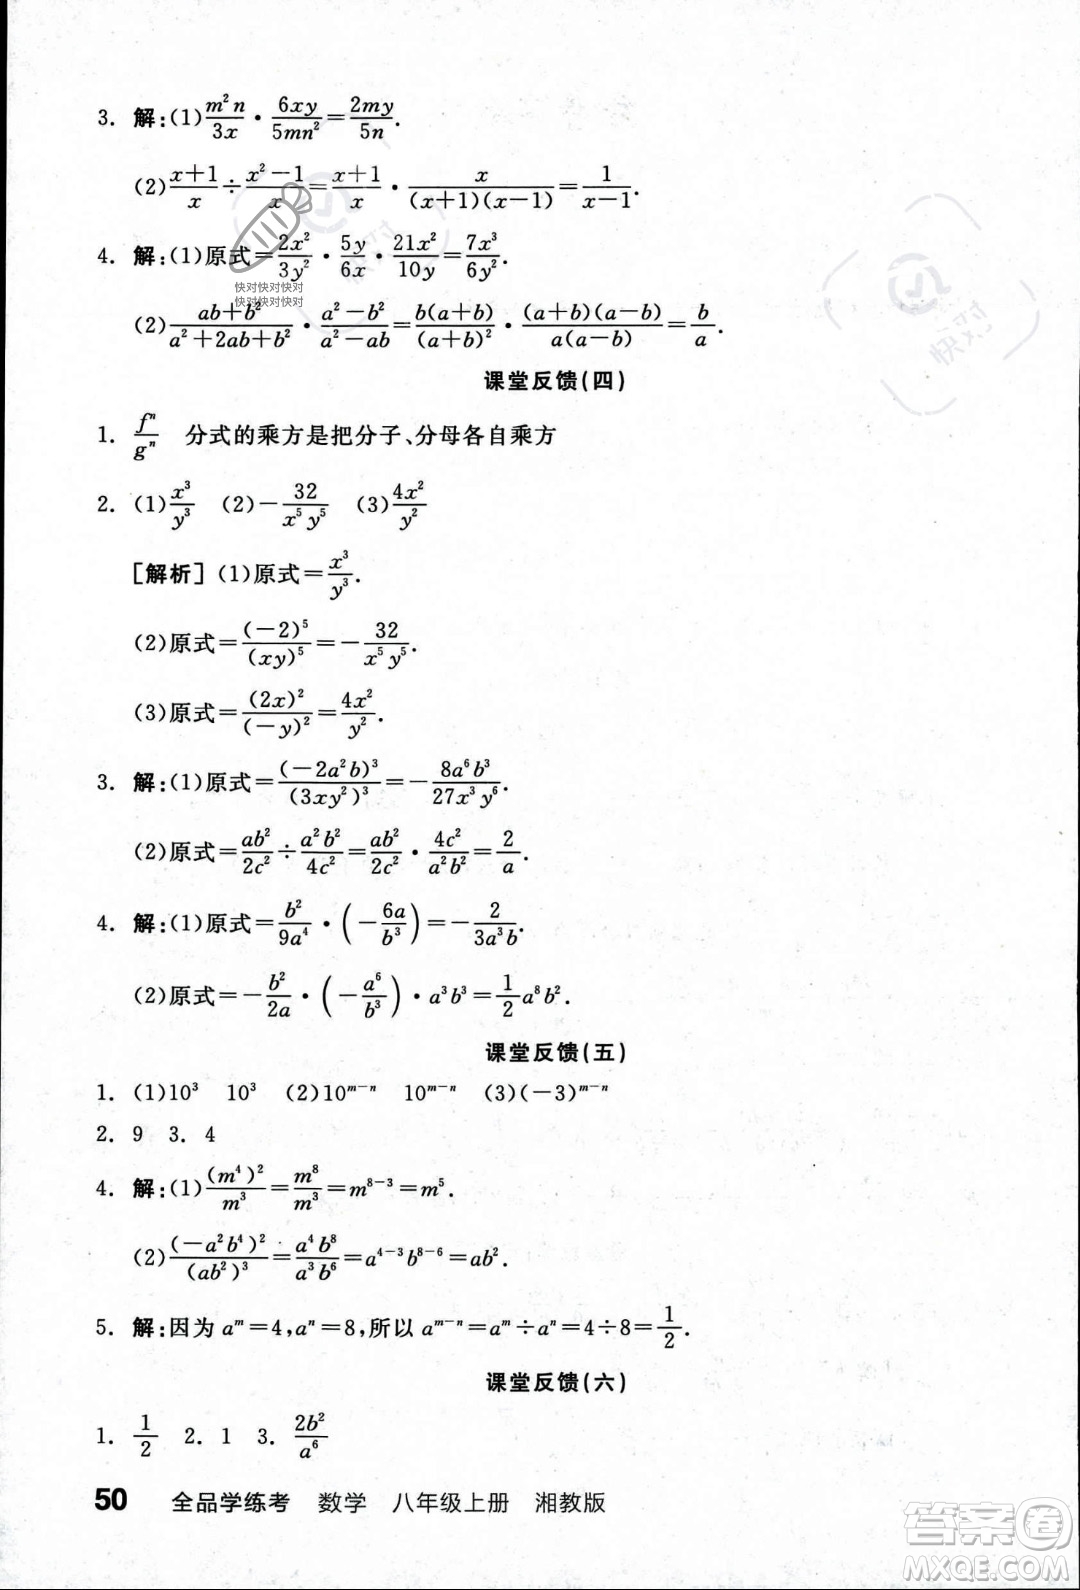 3. 解:(1)m²n/3x · 6xy/5mn² = 2my/5n.
(2)(x+1)/x ÷ (x²-1)/x = (x+1)/x · x/((x+1)(x-1)) = 1/(x-1).
4. 解:(1)原式 = 2x²/3y² · 5y/6x · 21x²/10y = 7x³/6y².
快对快对快对
快对快对快对
(2)(ab+b²)/(a²+2ab+b²) · (a²-b²)/(a²-ab) = b(a+b)/(a+b)² · (a+b)(a-b)/a(a-b) = b/a.
快对
快对
课堂反馈(四)
1. fⁿ/gⁿ 分式的乘方是把分子、分母各自乘方
2. (1)x³/y³ (2)-32/x⁵y⁵ (3)4x²/y²
[解析](1)原式 = x³/y³.
(2)原式 = (-2)⁵/(xy)⁵ = -32/x⁵y⁵.
(3)原式 = (2x)²/(-y)² = 4x²/y².
3. 解:(1)原式 = (-2a²b)³/(3xy²)³ = -8a⁶b³/27x³y⁶.
(2)原式 = ab²/2c² ÷ a²b²/4c² = ab²/2c² · 4c²/a²b² = 2/a.
4. 解:(1)原式 = b²/9a⁴ · (-6a/b³) = -2/3a³b.
(2)原式 = -b²/2a · (-a⁶/b³) · a³b³ = 1/2 a⁸b².
课堂反馈(五)
1. (1)10³ 10³ (2)10ᵐ⁻ⁿ 10ᵐ⁻ⁿ (3)(-3)ᵐ⁻ⁿ
2. 9 3. 4
4. 解:(1)(m⁴)²/m³ = m⁸/m³ = m⁸⁻³ = m⁵.
(2)(-a²b⁴)²/(ab²)³ = a⁴b⁸/a³b⁶ = a⁴⁻³b⁸⁻⁶ = ab².
5. 解:因为 aᵐ=4,aⁿ=8,所以 aᵐ⁻ⁿ=aᵐ÷aⁿ=4÷8=1/2.
课堂反馈(六)
1. 1/2 2. 1 3. 2b²/a⁶
50 全品学练考 数学 八年级上册 湘教版
答案圈
MXQE.COM